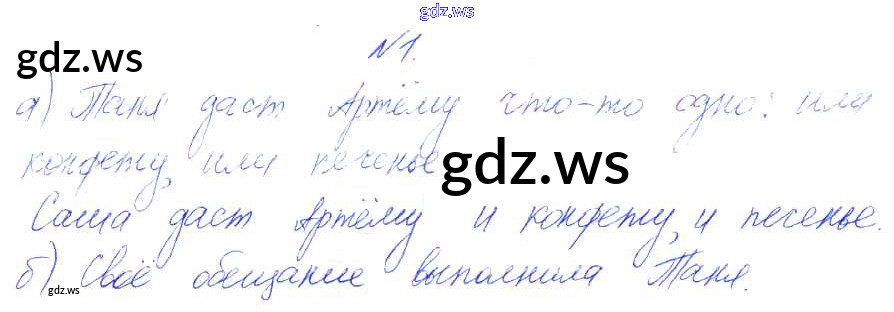 gdz.ws
№1.
gdz.ws
а) Таня даст Артёму что-то одно: или
конфету, или печенье
gdz.ws
Саша даст Артёму и конфету, и печенье.
б) Своё обещание выполнила Таня.
gdz.ws